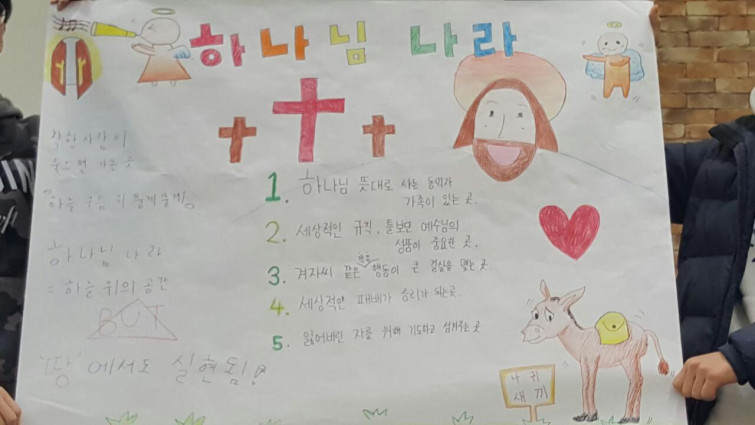 하나님 나라
착한사람이
죽으면 가는 곳
하늘 구름 위
하나님 나라
= 하늘 위의 공간
BUT
'땅'에서도 실현됨!
1. 하나님 뜻대로 사는 동역자
가족이 있는 곳.
2. 세상적인 규칙, 틀보단 예수님의
성품이 중요한 곳.
3. 겨자씨 같은 행동이 큰 결실을 맺는 곳
4. 세상적인 패배가 승리가 되는곳.
5. 잃어버린 자를 위해 기도하고 섬겨주는 곳
나귀
새끼